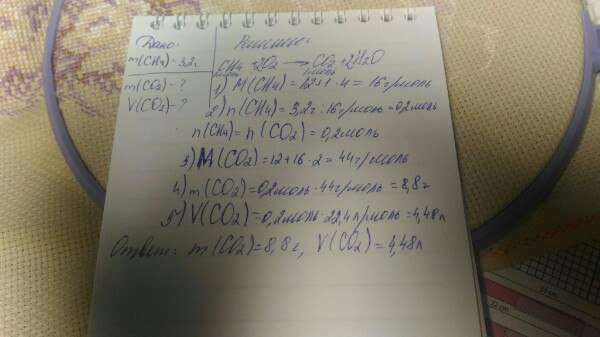 Дано:
m(CH4)=3,2г
m(CO2)-?
V(CO2)-?
Решение:
CH4+2O2 → CO2+2H2O
1моль 1моль
1) M(CH4)=12+1·4=16г/моль
2) n(CH4)=3,2г:16г/моль=0,2моль
n(CH4)=n(CO2)=0,2моль
3) M(CO2)=12+16·2=44г/моль
4) m(CO2)=0,2моль·44г/моль=8,8г
5) V(CO2)=0,2моль·22,4л/моль=4,48л
Ответ: m(CO2)=8,8г, V(CO2)=4,48л